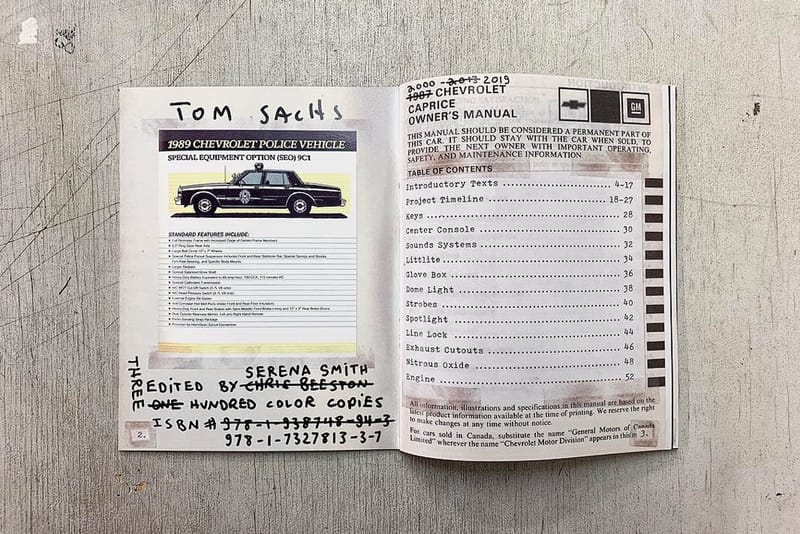 TOM SACHS
1989 CHEVROLET POLICE VEHICLE
SPECIAL EQUIPMENT OPTION (SEO) 9C1
STANDARD FEATURES INCLUDE:
SERENA SMITH
EDITED BY CHRIS BEESTON
THREE
ONE HUNDRED COLOR COPIES
ISBN # 978-1-938748-94-3
978-1-7327813-3-7
2.
2,000 2,013 2019
1987 CHEVROLET
CAPRICE
OWNER'S MANUAL
GM
THIS MANUAL SHOULD BE CONSIDERED A PERMANENT PART OF
THIS CAR. IT SHOULD STAY WITH THE CAR WHEN SOLD, TO
PROVIDE THE NEXT OWNER WITH IMPORTANT OPERATING,
SAFETY, AND MAINTENANCE INFORMATION.
TABLE OF CONTENTS
Introductory Texts 4-17
Project Timeline 18-27
Keys 28
Center Console 30
Sounds Systems 32
Littlite 34
Glove Box 36
Dome Light 38
Strobes 40
Spotlight 42
Line Lock 44
Exhaust Cutouts 46
Nitrous Oxide 48
Engine 52
All information, illustrations and specifications in this manual are based on the
latest product information available at the time of printing. We reserve the right
to make changes at any time without notice.
For cars sold in Canada, substitute the name "General Motors of Canada
Limited" wherever the name "Chevrolet Motor Division" appears in this
3.